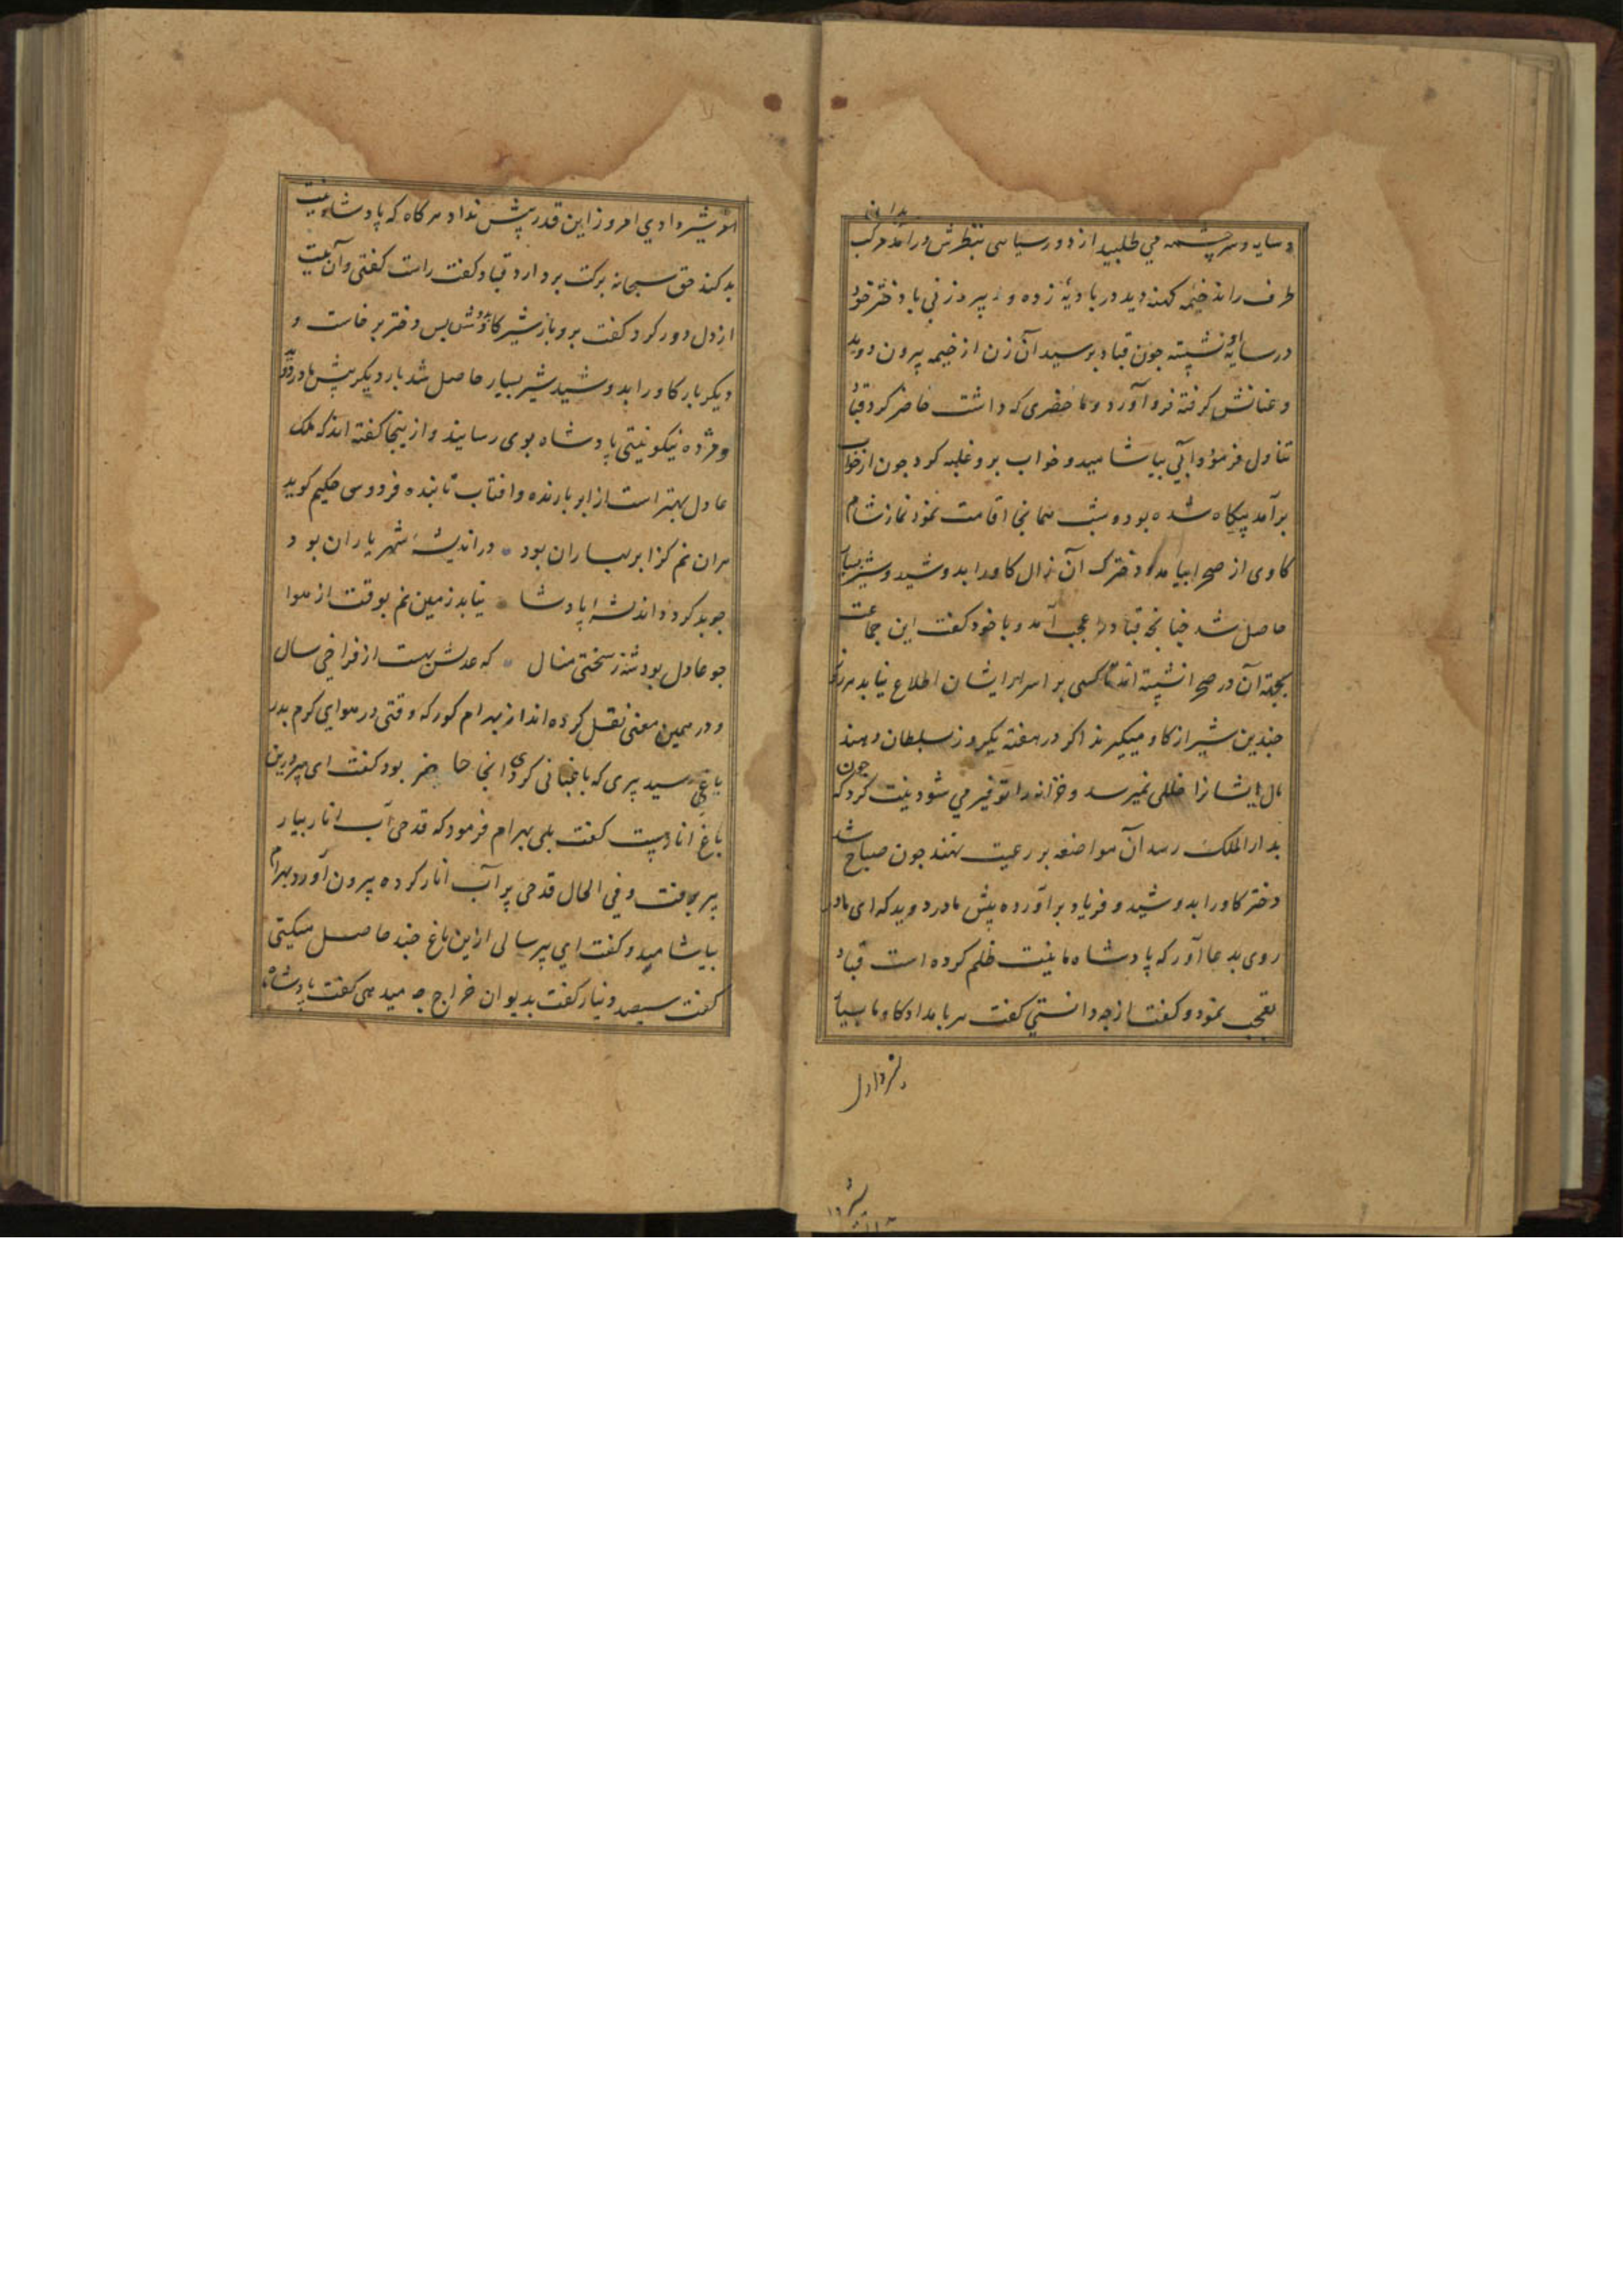 بدانی
و سایه و سرچشمه می طلبید از دور سیاهی بنظرش درآمد مرکب
طرف راند خیمه کهنه دید در بادیه زده و پیر زنی با دختر خود
در سایه نشسته جون قباد برسید آن زن از خیمه بیرون دوید
و عنانش کرفته فرود آورد و ما حضری که داشت حاضر کرد قباد
تناول فرمود و آبی بیاشامید و خواب برو غلبه کرد جون از خواب
برآمد بیکاه شده بود و شب همانجا اقامت نمود نماز شام
کاوی از صحرا بیامد و دخترک آن زال کاو را بدوشید و شیر بسیار
حاصل شد جنانجه قباد را عجب آمد و با خود کفت این جماعت
بجهة آن در صحرا نشسته اند تا کسی بر اسرار ایشان اطلاع نیابد هر روز
جندین شیر از کاو میکیرند اکر در هفته یکروز بسلطان دهند
مال ایشانرا خللی نمیرسد و خزانه را توفیر می شود نیت کرد که جون
بدار الملک رسد آن مواضعه بر رعیت نهند جون صباح شد
دختر کاو را بدوشید و فریاد برآورده پیش مادر دوید که ای مادر
روی بدعا آور که پادشاه ما نیت ظلم کرده است قباد
تعجب نمود و کفت از جه دانستی کفت هر بامداد کاو ما بسیار
شیر دادی امروز این قدر بیش نداد هر کاه که پادشاه نیت
بد کند حق سبحانه برکت بردارد قباد کفت راست کفتی و آن نیت
از دل دور کرد کفت برو باز شیر کاو بدوش بس دختر برخاست و
دیکر بار کاو را بدوشید شیر بسیار حاصل شد بار دیکر پیش مادر دوید
و مژده نیکو نیتی پادشاه بوی رسانید و از ینجا کفته اند که ملک
عادل بهتر است از ابر بارنده و افتاب تابنده فردوسی حکیم کوید
هران نم کز ابر بهاران بود در اندیشهٔ شهریاران بود
جو بد کردد اندیشهٔ پادشا نیابد زمین نم بوقت از هوا
جو عادل بود شه ز سختی منال که عدلش بهست از فراخی سال
و در همین معنی نقل کرده اند از بهرام کور که وقتی در هوای کرم بدر
باغی رسید پیری که باغبانی کردی انجا حاضر بود کفت ای پیر درین
باغ انار هست کفت بلی بهرام فرمود که قدحی آب انار بیار
پیر برفت و فی الحال قدحی پر آب انار کرده بیرون آورد بهرام
بیاشامید و کفت ای پیر سالی از این باغ جند حاصل میکنی
کفت سیصد دینار کفت بدیوان خراج جه میدهی کفت پادشاه ما
شیر دادی